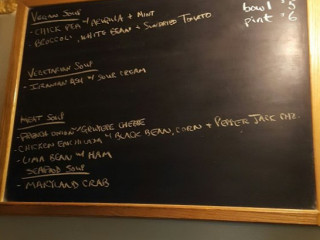 Vegan Soup
- Chick Pea w/ Arugula + Mint
- Broccoli, White Bean + Sundried Tomato
bowl $5
pint $6
Vegetarian Soup
- Ash w/ Sour Cream
Meat Soup
- French Onion w/ Gruyere Cheese
- Chicken Enchilada w/ Black Bean, Corn + Pepper Jack
- Lima Bean w/ Ham
Seafood Soup
- Maryland Crab